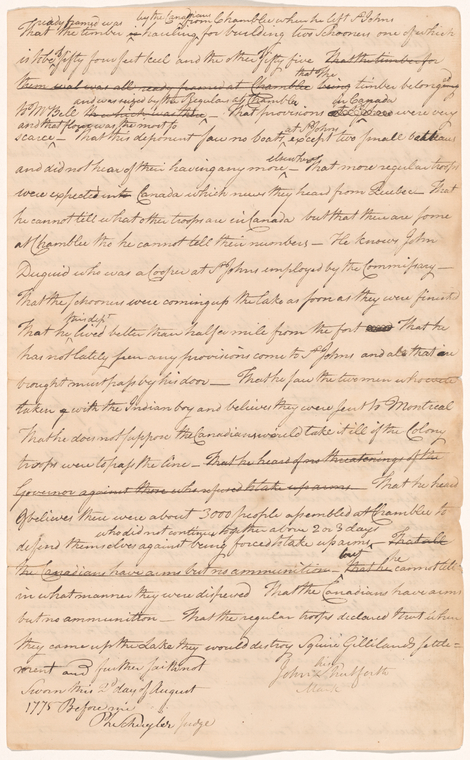 ready framed was by the Canadians from Chamblee when he left St Johns
That the timber hauling for building two Schooners one of which
is to be fifty four feet keel and the other fifty five That the timber for
that the
them was all ready framed at Chamblee being timber belonging
and was seized by the Regulars at Chamblee in Canada
to Mr Bell That provisions were very
and that flour was the most so at St Johns
scarce That this deponent saw no boats except two small batteaus
elsewhere
and did not hear of their having any more That more regular troops
were expected in Canada which news they heard from Quebec That
he cannot tell what other troops are in Canada but that there are some
at Chamblee tho he cannot tell their numbers He knows John
Duguid who was a Cooper at St Johns employed by the Commissary
That the Schooners were coming up the lake as soon as they were finised
this dept
That he lived better than half a mile from the fort That he
has not lately seen any provisions come to St Johns and that
brought must pass by his door That he saw the two men who were
taken with the Indian boy and believes they were sent to Montreal
That he does not suppose the Canadians would take it ill of the Colony
troops were to pass the line That he heard of no threatenings of the
Governor against those who refused to take up arms That he heard
& believes there were about 3000 people assembled at Chamblee to
who did not continue together above 2 or 3 days
defend themselves against being forced to take up arms That all
but he
the Canadians have arms but no ammunition that he cannot tell
in what manner they were dispersed That the Canadians have arms
but no ammunition That the regular troops declared that when
they came up the Lake they would destroy Squire Gillilands settle=
ment and further saith not
his
John X Shatforth
Mark
Sworn this 2d day of August
1775 Before me
Ph: Schuyler Judge